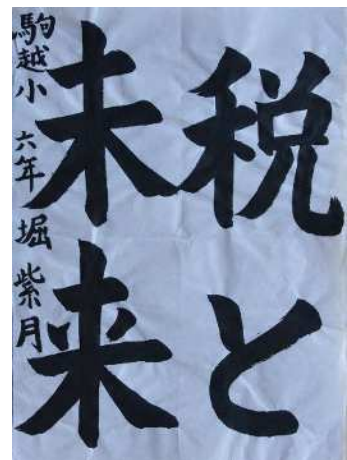 税と
未来
駒越小 六年 堀 紫月